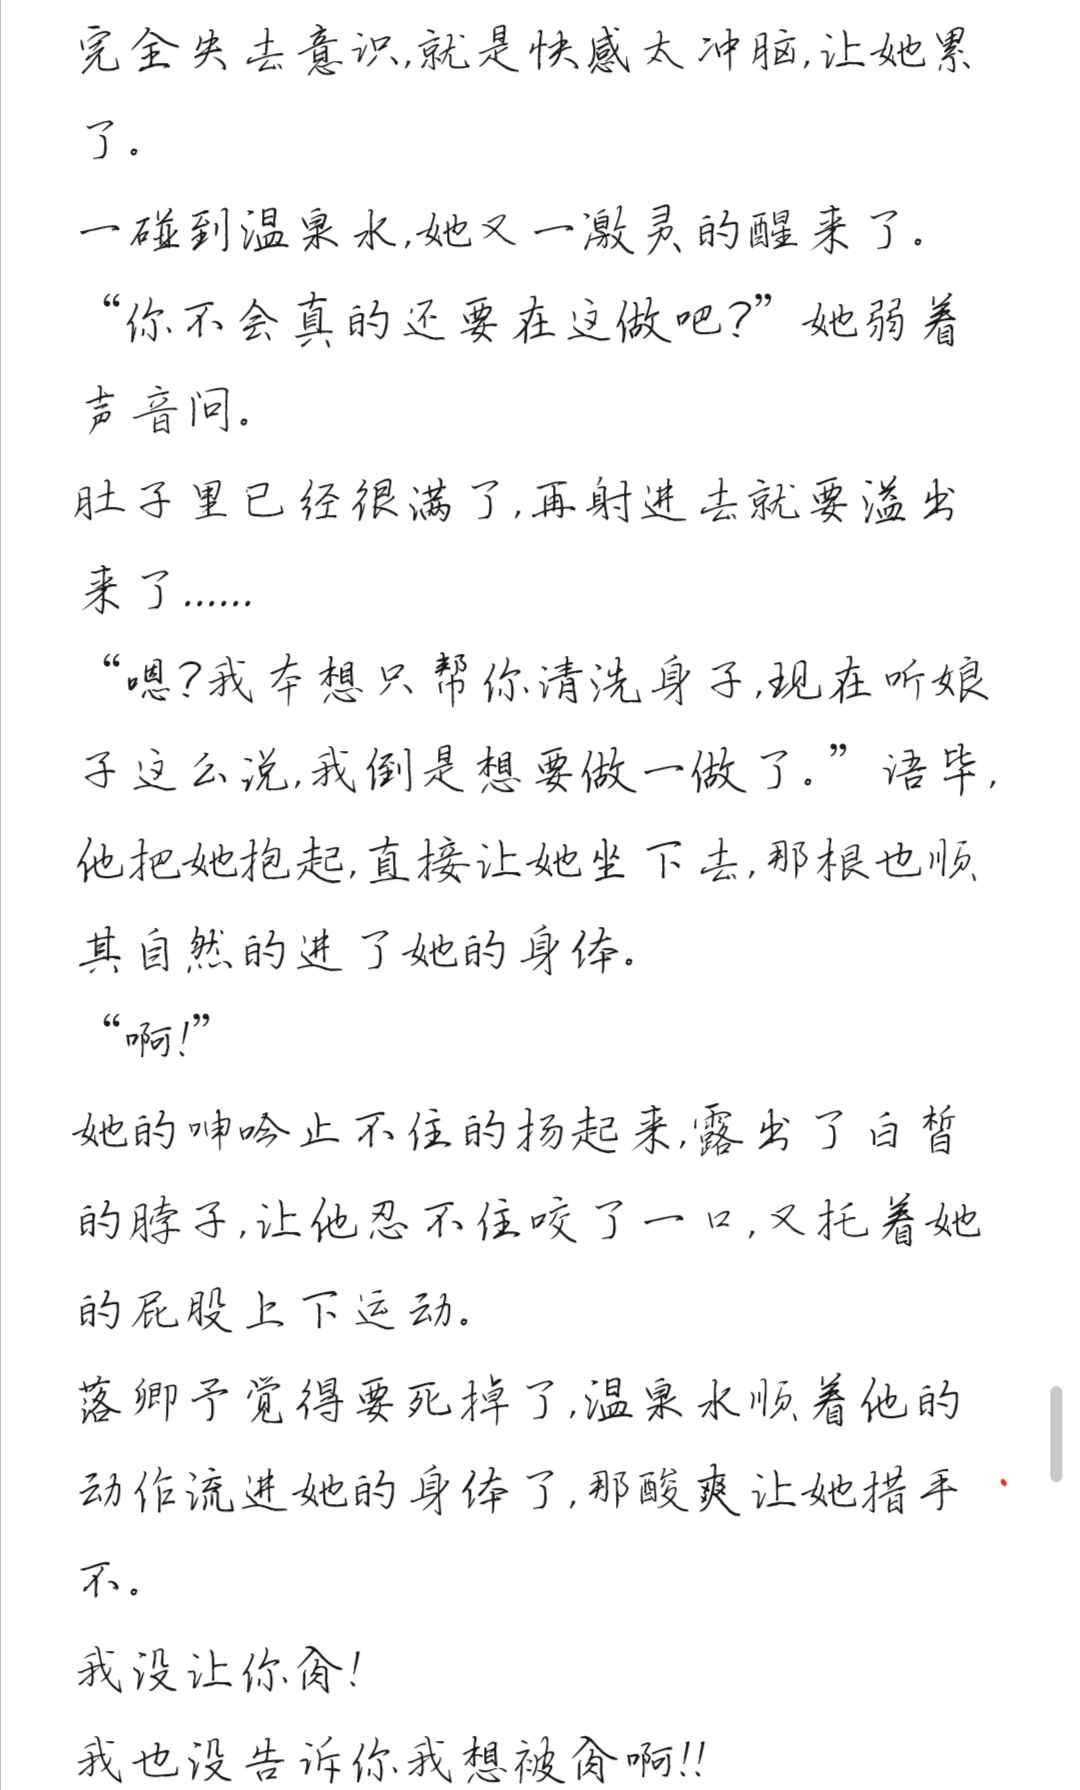 完全失去意识,就是快感太冲脑,让她累
了。
一碰到温泉水,她又一激灵的醒来了。
“你不会真的还要在这做吧?”她弱着
声音问。
肚子里已经很满了,再射进去就要溢出
来了……
“嗯?我本想只帮你清洗身子,现在听娘
子这么说,我倒是想要做一做了。”语毕,
他把她抱起,直接让她坐下去,那根也顺
其自然的进了她的身体。
“啊!”
她的呻吟止不住的扬起来,露出了白皙
的脖子,让他忍不住咬了一口,又托着她
的屁股上下运动。
落卿予觉得要死掉了,温泉水顺着他的
动作流进她的身体了,那酸爽让她措手
不。
我没让你肏!
我也没告诉你我想被肏啊!!